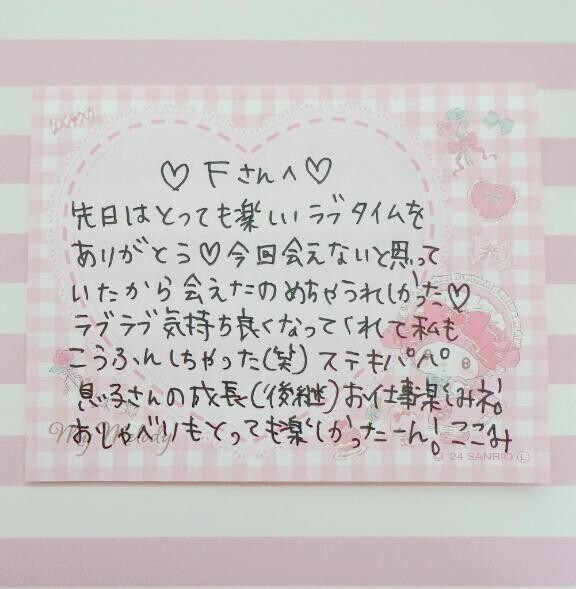 ♡ Fさんへ♡
先日はとっても楽しいラブタイムを
ありがとう♡今回会えないと思って
いたから会えたのめちゃうれしかった♡
ラブラブ気持ち良くなってくれて私も
こうふんしちゃった(笑)ステキパパ
息子さんの成長(後継)お仕事楽しみネ!
おしゃべりもとっても楽しかったーん!ここみ
My Melody
'24 SANRIO Ⓛ